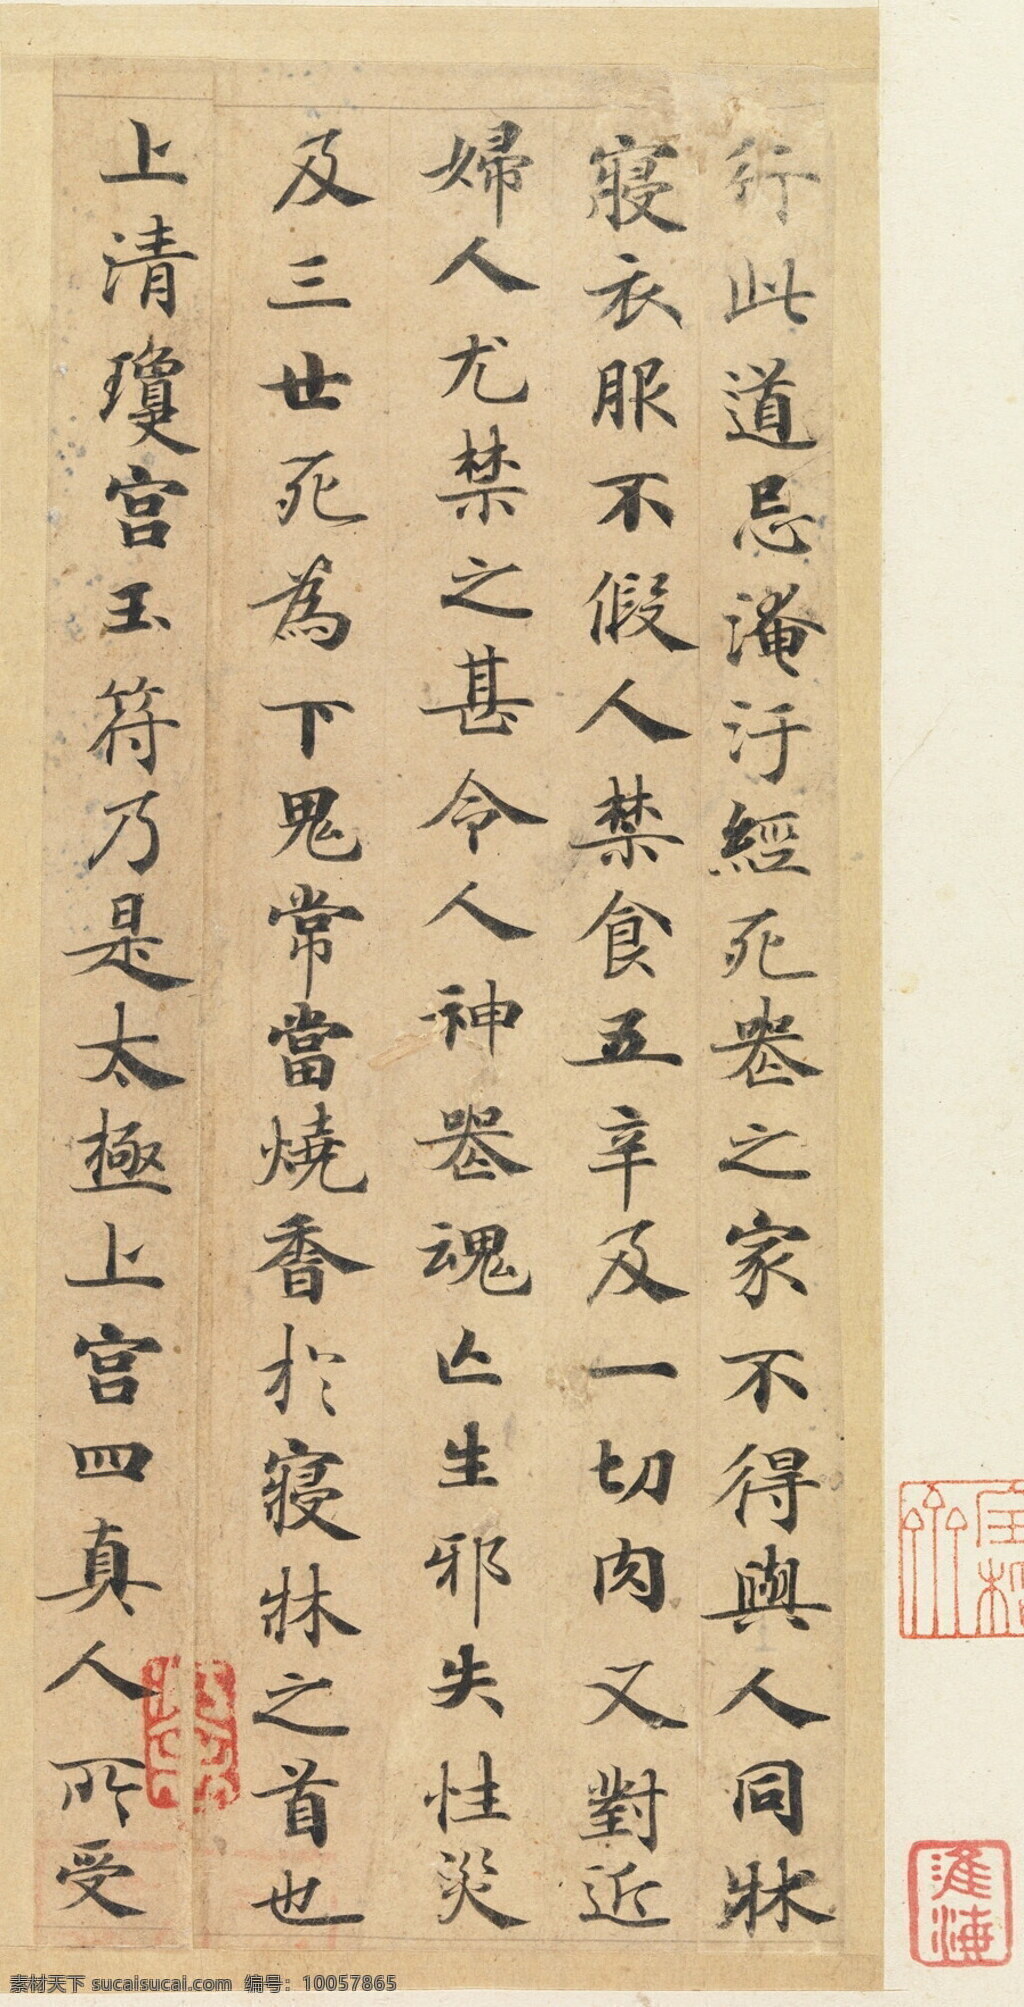 行此道忌淹汙經死喪之家不得與人同牀
寢衣服不假人禁食五辛及一切肉又對近
婦人尤禁之甚令人神喪魂亡生邪失性災
及三世死為下鬼常當燒香於寢牀之首也
上清瓊宮玉符乃是太極上宮四真人所受
淮海
素材天下 sucaisucai.com 编号：10057865